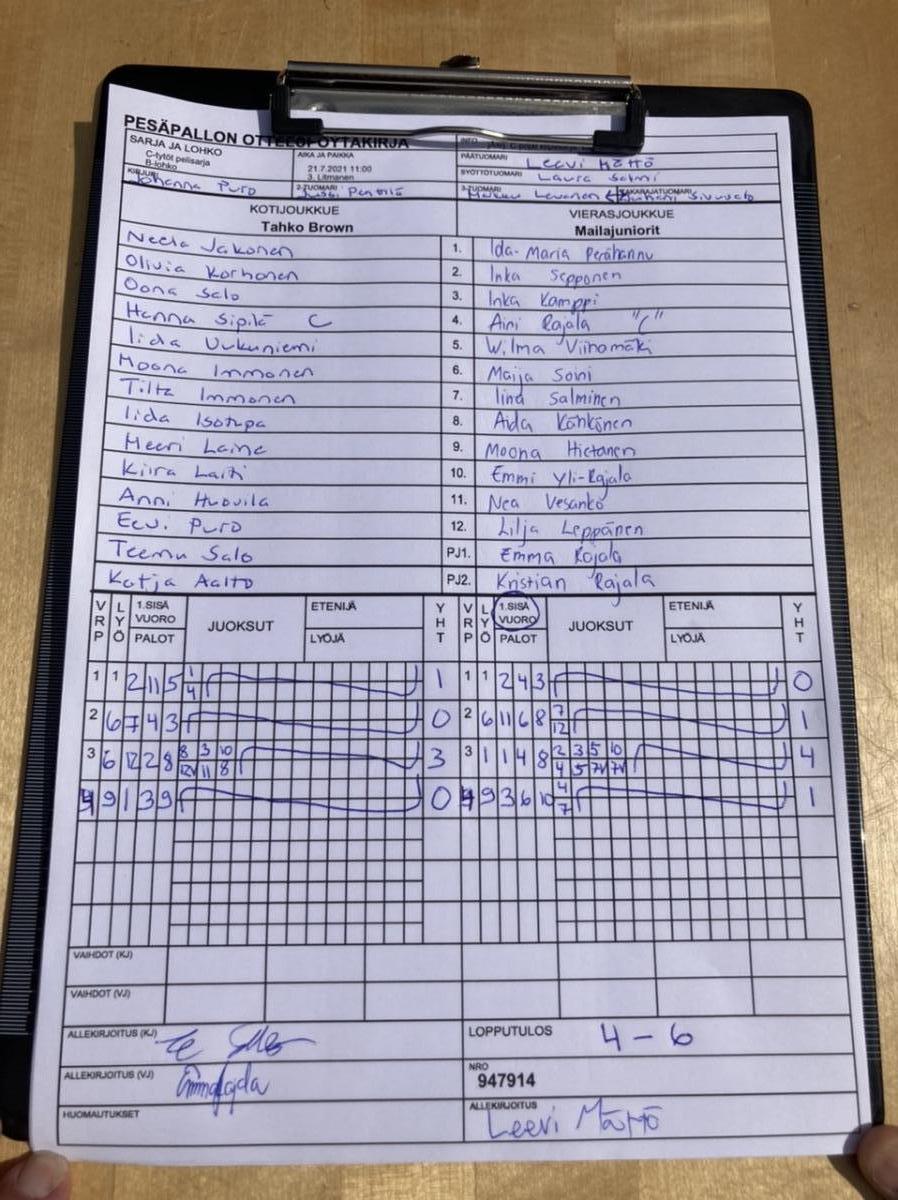 PESÄPALLON OTTELUPÖYTÄKIRJA
SARJA JA LOHKO
C-tytöt pelisarja
B-lohko
AIKA JA PAIKKA
21.7.2021 11:00
3. Litmanen
INFO
PÄÄTUOMARI Leevi Mättö
SYÖTTÖTUOMARI Laura Salmi
KIRJURI Johanna Puro
2-TUOMARI Jussi Penttilä
3-TUOMARI
TAKARAJATUOMARI
KOTIJOUKKUE VIERASJOUKKUE
Tahko Brown Mailajuniorit
Neela Jakonen 1. Ida-Maria Perähannu
Olivia Korhonen 2. Inka Sepponen
Oona Salo 3. Inka Kamppi
Hanna Sipilä C 4. Aini Rajala "C"
Iida Uukuniemi 5. Wilma Viinamäki
Moona Immonen 6. Maija Soini
Immonen 7. Iina Salminen
Iida Isotupa 8. Aida Kähkönen
Meeri Laine 9. Moona Hietanen
Kiira Laiti 10. Emmi Yli-Rajala
Anni Huovila 11. Nea Vesanko
Eevi Puro 12. Lilja Leppänen
Teemu Salo PJ1. Emma Rajala
Katja Aalto PJ2. Kristian Rajala
VRP LYÖ 1.SISÄ VUORO PALOT JUOKSUT ETENIJÄ LYÖJÄ YHT VRP LYÖ 1.SISÄ VUORO PALOT JUOKSUT ETENIJÄ LYÖJÄ YHT
1 1 2 11 5 1 4 1 1 1 2 4 3 0
2 6 7 4 3 0 2 6 11 6 8 7 12 1
3 6 12 2 8 8 3 10 12V 11 8 3 3 1 1 4 8 2 3 5 10 4 5 7V 7V 4
4 9 1 3 9 0 4 9 3 6 10 4 7 1
VAIHDOT (KJ)
VAIHDOT (VJ)
ALLEKIRJOITUS (KJ) LOPPUTULOS 4-6
ALLEKIRJOITUS (VJ) Emma Rajala NRO
947914
HUOMAUTUKSET ALLEKIRJOITUS Leevi Mättö